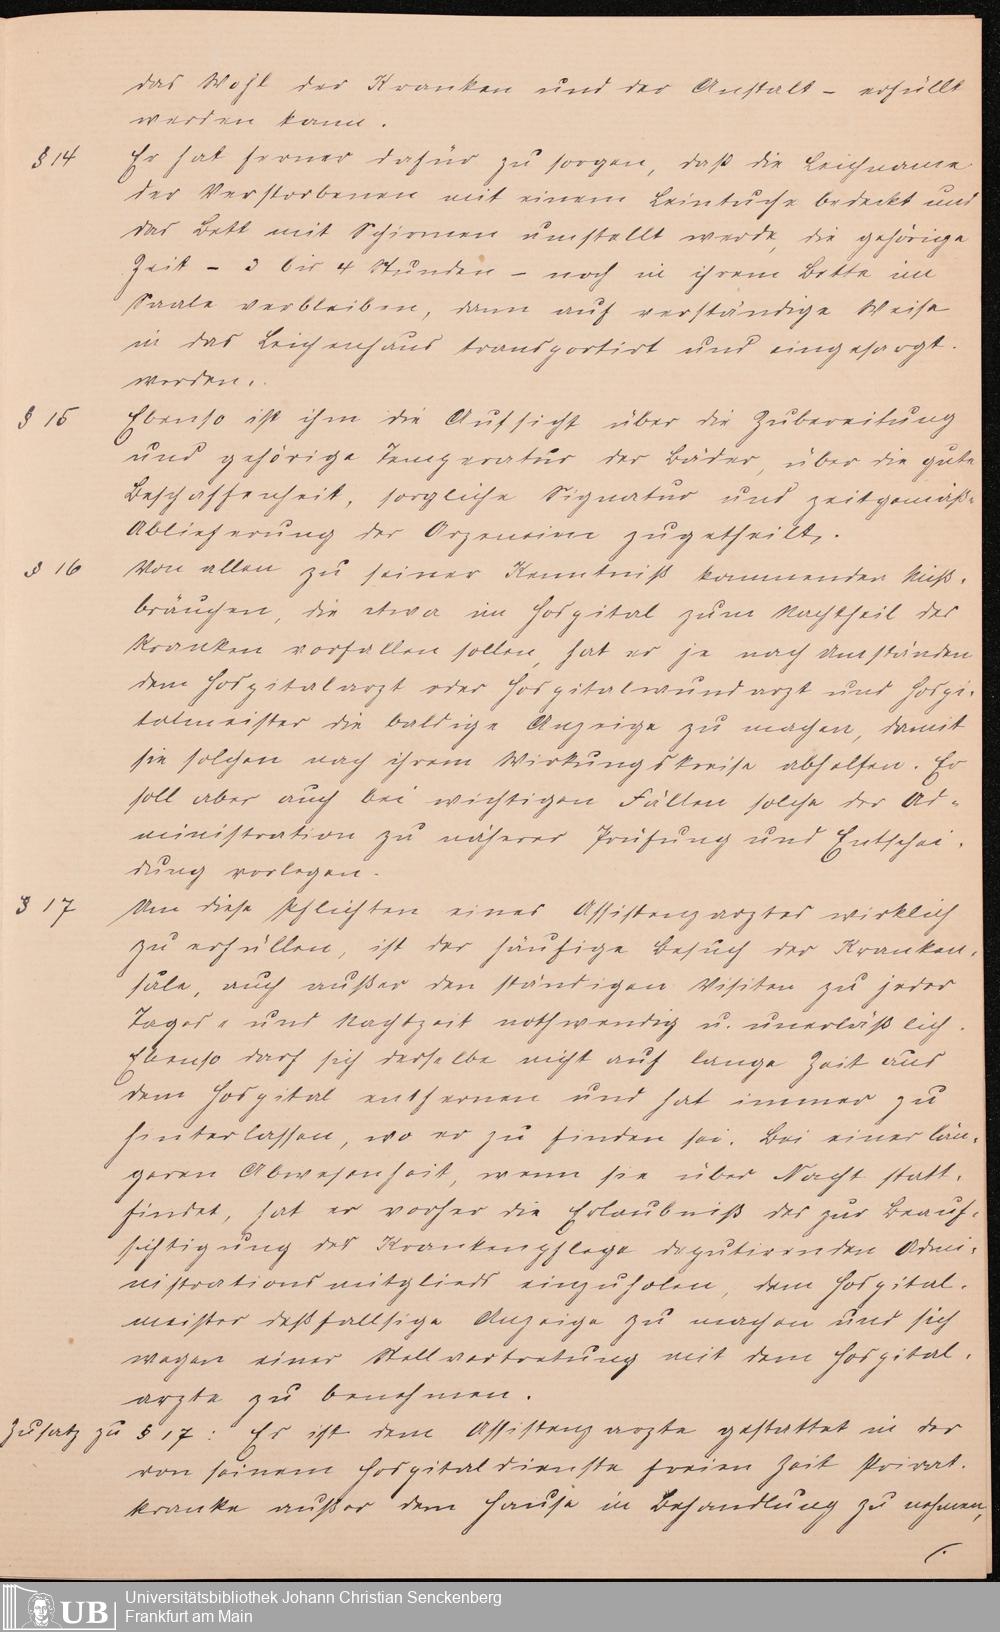 das Wohl der Kranken und der Anstalt – erfüllt
werden kann.
§ 14 Er hat ferner dafür zu sorgen, daß die Leichname
der Verstorbenen mit einem Leintuche bedeckt und
das Bett mit Schirmen umstellt werde, die gehörige
Zeit – 3 bis 4 Stunden – noch in ihrem Bette im
Saale verbleiben, dann auf verständige Weise
in das Leichenhaus transportirt und eingesargt
werden.
§ 15 Ebenso ist ihm die Aufsicht über die Zubereitung
und gehörige Temperatur der Bäder, über die gute
Beschaffenheit, sorgliche Signatur und zeitgemäße
Ablieferung der Arzeneien zugetheilt.
§ 16 Von allen zu seiner Kenntniß kommenden Miß-
bräuchen, die etwa im Hospital zum Nachtheil der
Kranken vorfallen sollen, hat er je nach Umständen
dem Hospitalarzt oder Hospitalwundarzt und Hospi-
talmeister die baldige Anzeige zu machen, damit
sie solchen nach ihrem Wirkungskreise abhelfen. Er
soll aber auch bei wichtigen Fällen solche der Ad-
ministration zu näherer Prüfung und Entschei-
dung vorlegen.
§ 17 Um diese Pflichten eines Assistenzarztes wirklich
zu erfüllen, ist der häufige Besuch der Kranken-
säle, auch außer den ständigen Visiten zu jeder
Tages- und Nachtzeit nothwendig u. unerläßlich.
Ebenso darf sich derselbe nicht auf lange Zeit aus
dem Hospital entfernen und hat immer zu
hinterlassen, wo er zu finden sei. Bei einer län-
geren Abwesenheit, wenn sie über Nacht statt-
findet, hat er vorher die Erlaubniß des zur Beauf-
sichtigung der Krankenpflege deputirenden Admi-
nistrationsmitglieds einzuholen, dem Hospital-
meister deßfallsige Anzeige zu machen und sich
wegen einer Stellvertretung mit dem Hospital-
arzte zu benehmen.
Zusatz zu § 17: Es ist dem Assistenzarzte gestattet in der
von seinem Hospitaldienste freien Zeit Privat-
kranke außer dem Hause in Behandlung zu nehmen,
/.
UB Universitätsbibliothek Johann Christian Senckenberg
Frankfurt am Main